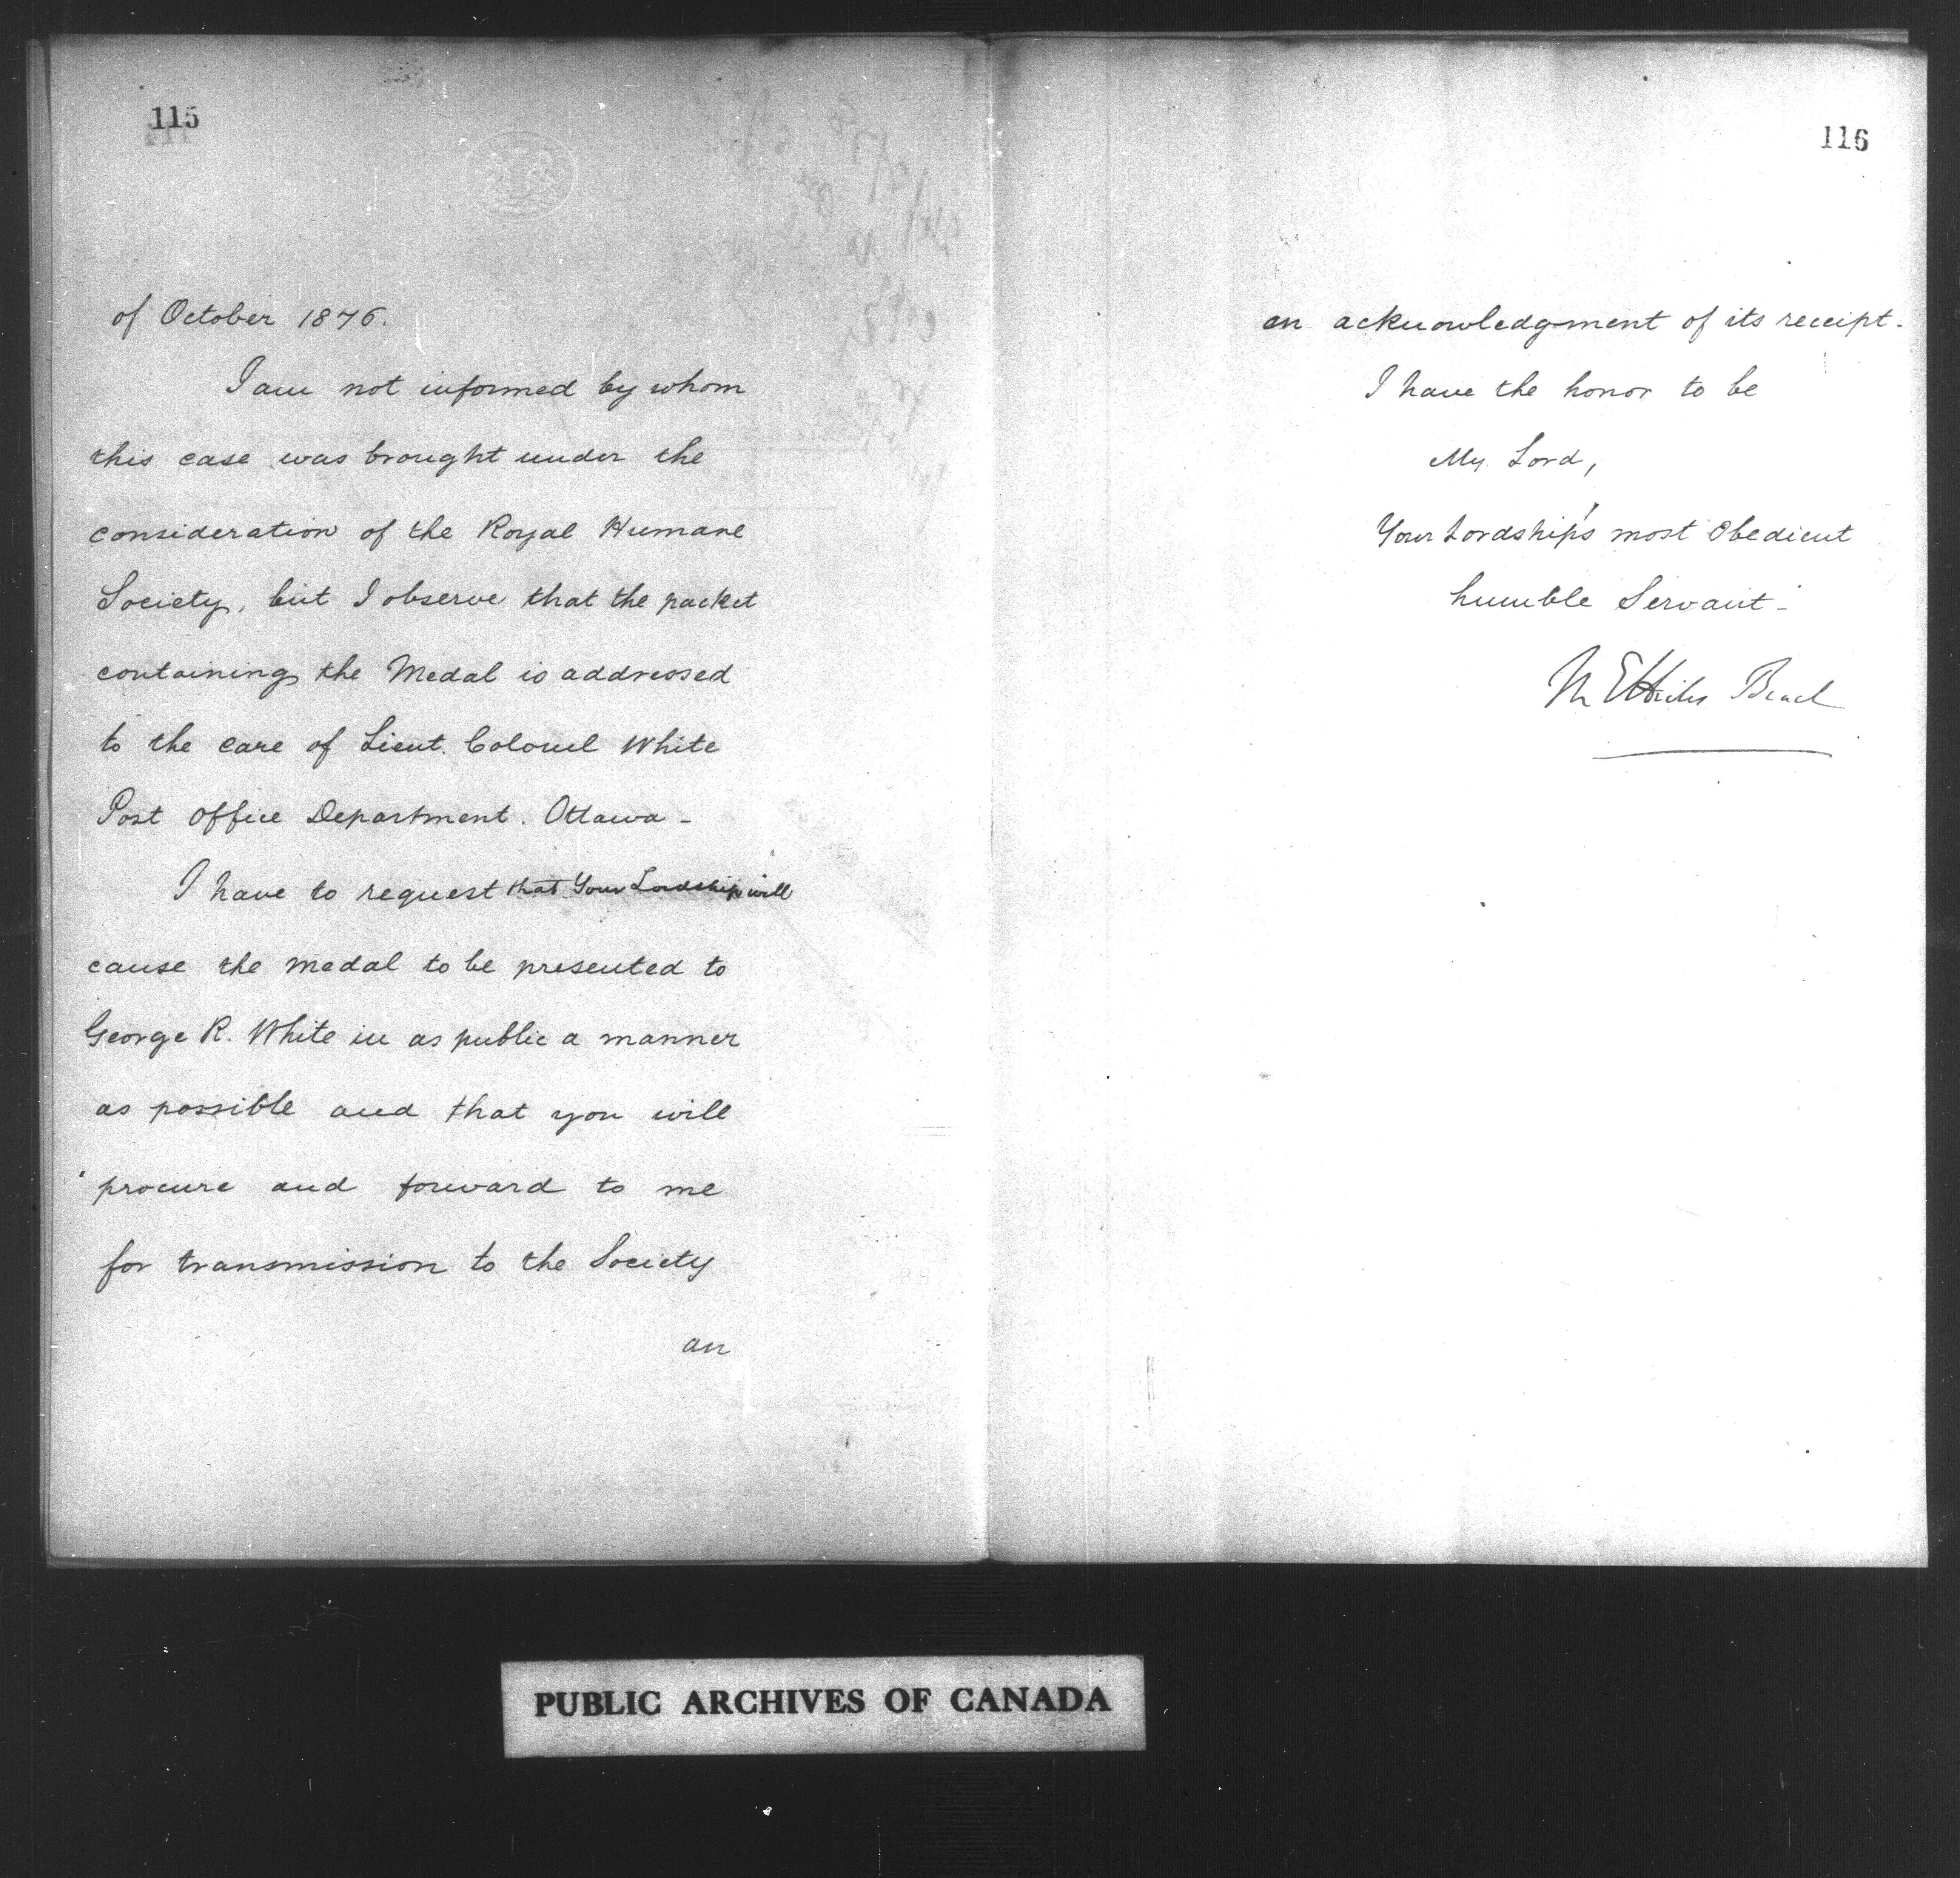 115
of October 1876.
I am not informed by whom
this case was brought under the
consideration of the Royal Humane
Society, but I observe that the packet
containing the Medal is addressed
to the care of Lieut. Colonel White
Post Office Department. Ottawa -
I have to request that Your Lordship will
cause the medal to be presented to
George R. White in as public a manner
as possible and that you will
procure and forward to me
for transmission to the Society
an
116
an acknowledgment of its receipt.
I have the honor to be
My Lord,
Your Lordship's most Obedient
humble Servant -
M E Hicks Beach
PUBLIC ARCHIVES OF CANADA